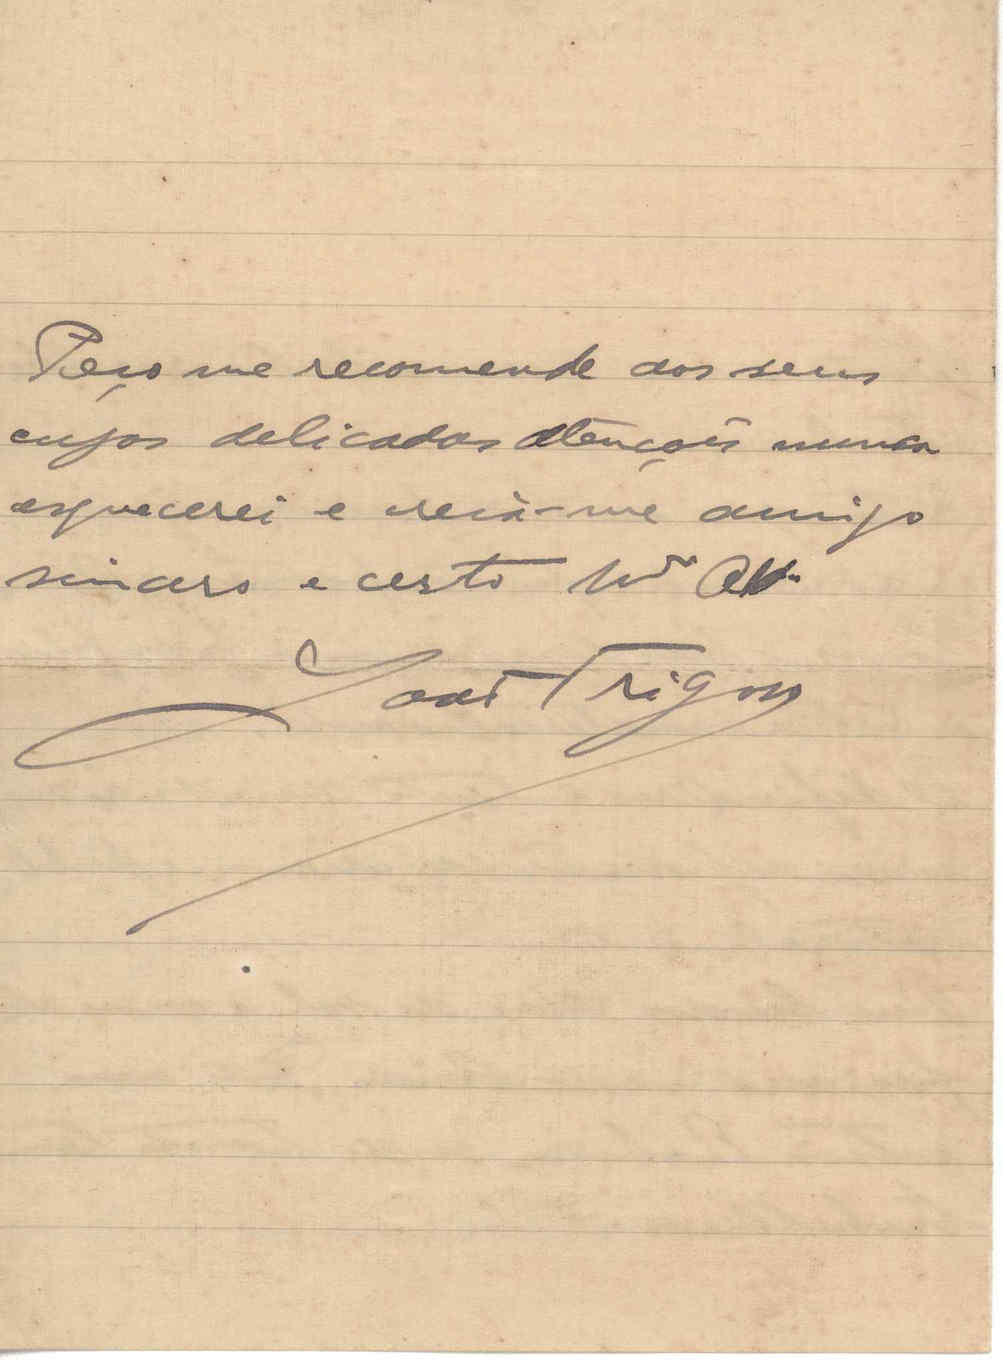 Peço me recomende aos seus
cujas delicadas atenções nunca
esquecerei e creia-me amigo
sincero e certo
José Trigoso